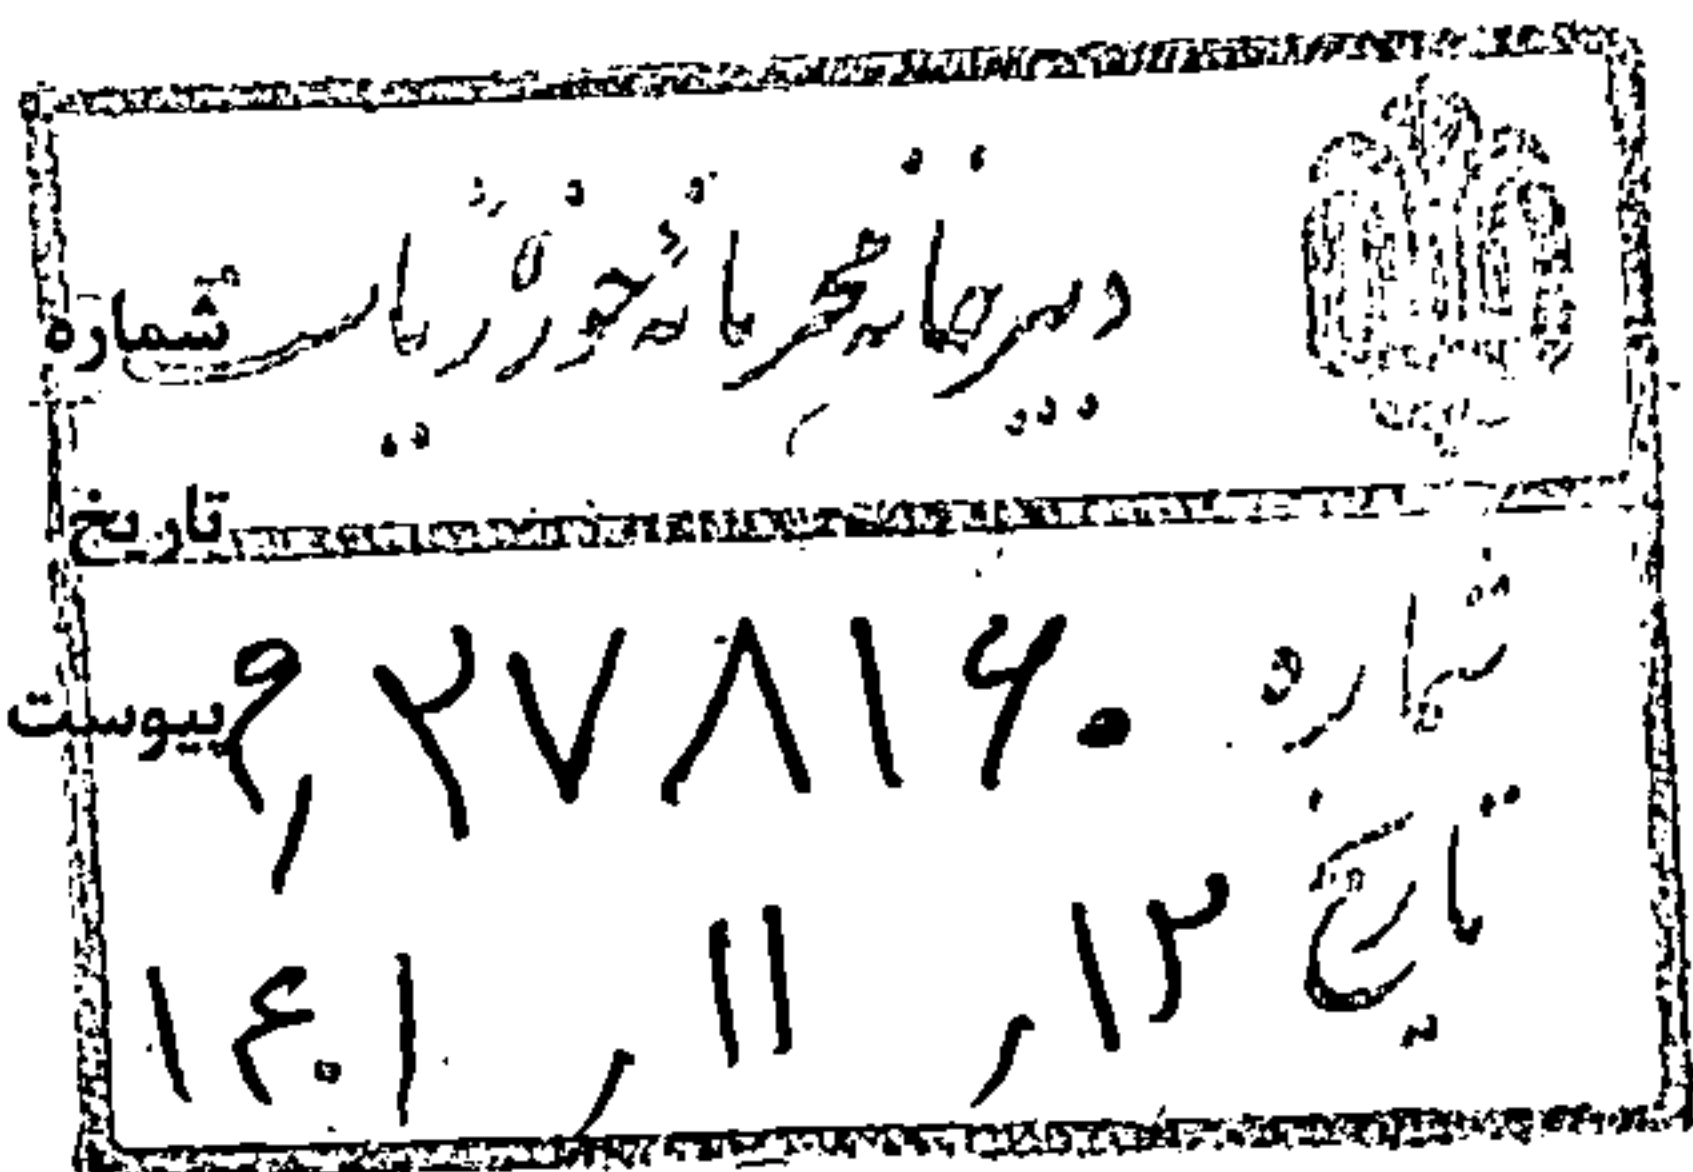 دبیرخانه محرمانه حوزه ریاست
شماره
تاریخ
شماره ۲۷۸۱۶۰
پیوست
تاریخ ۱۲ ر ۱۱ ر ۱۴۰۱